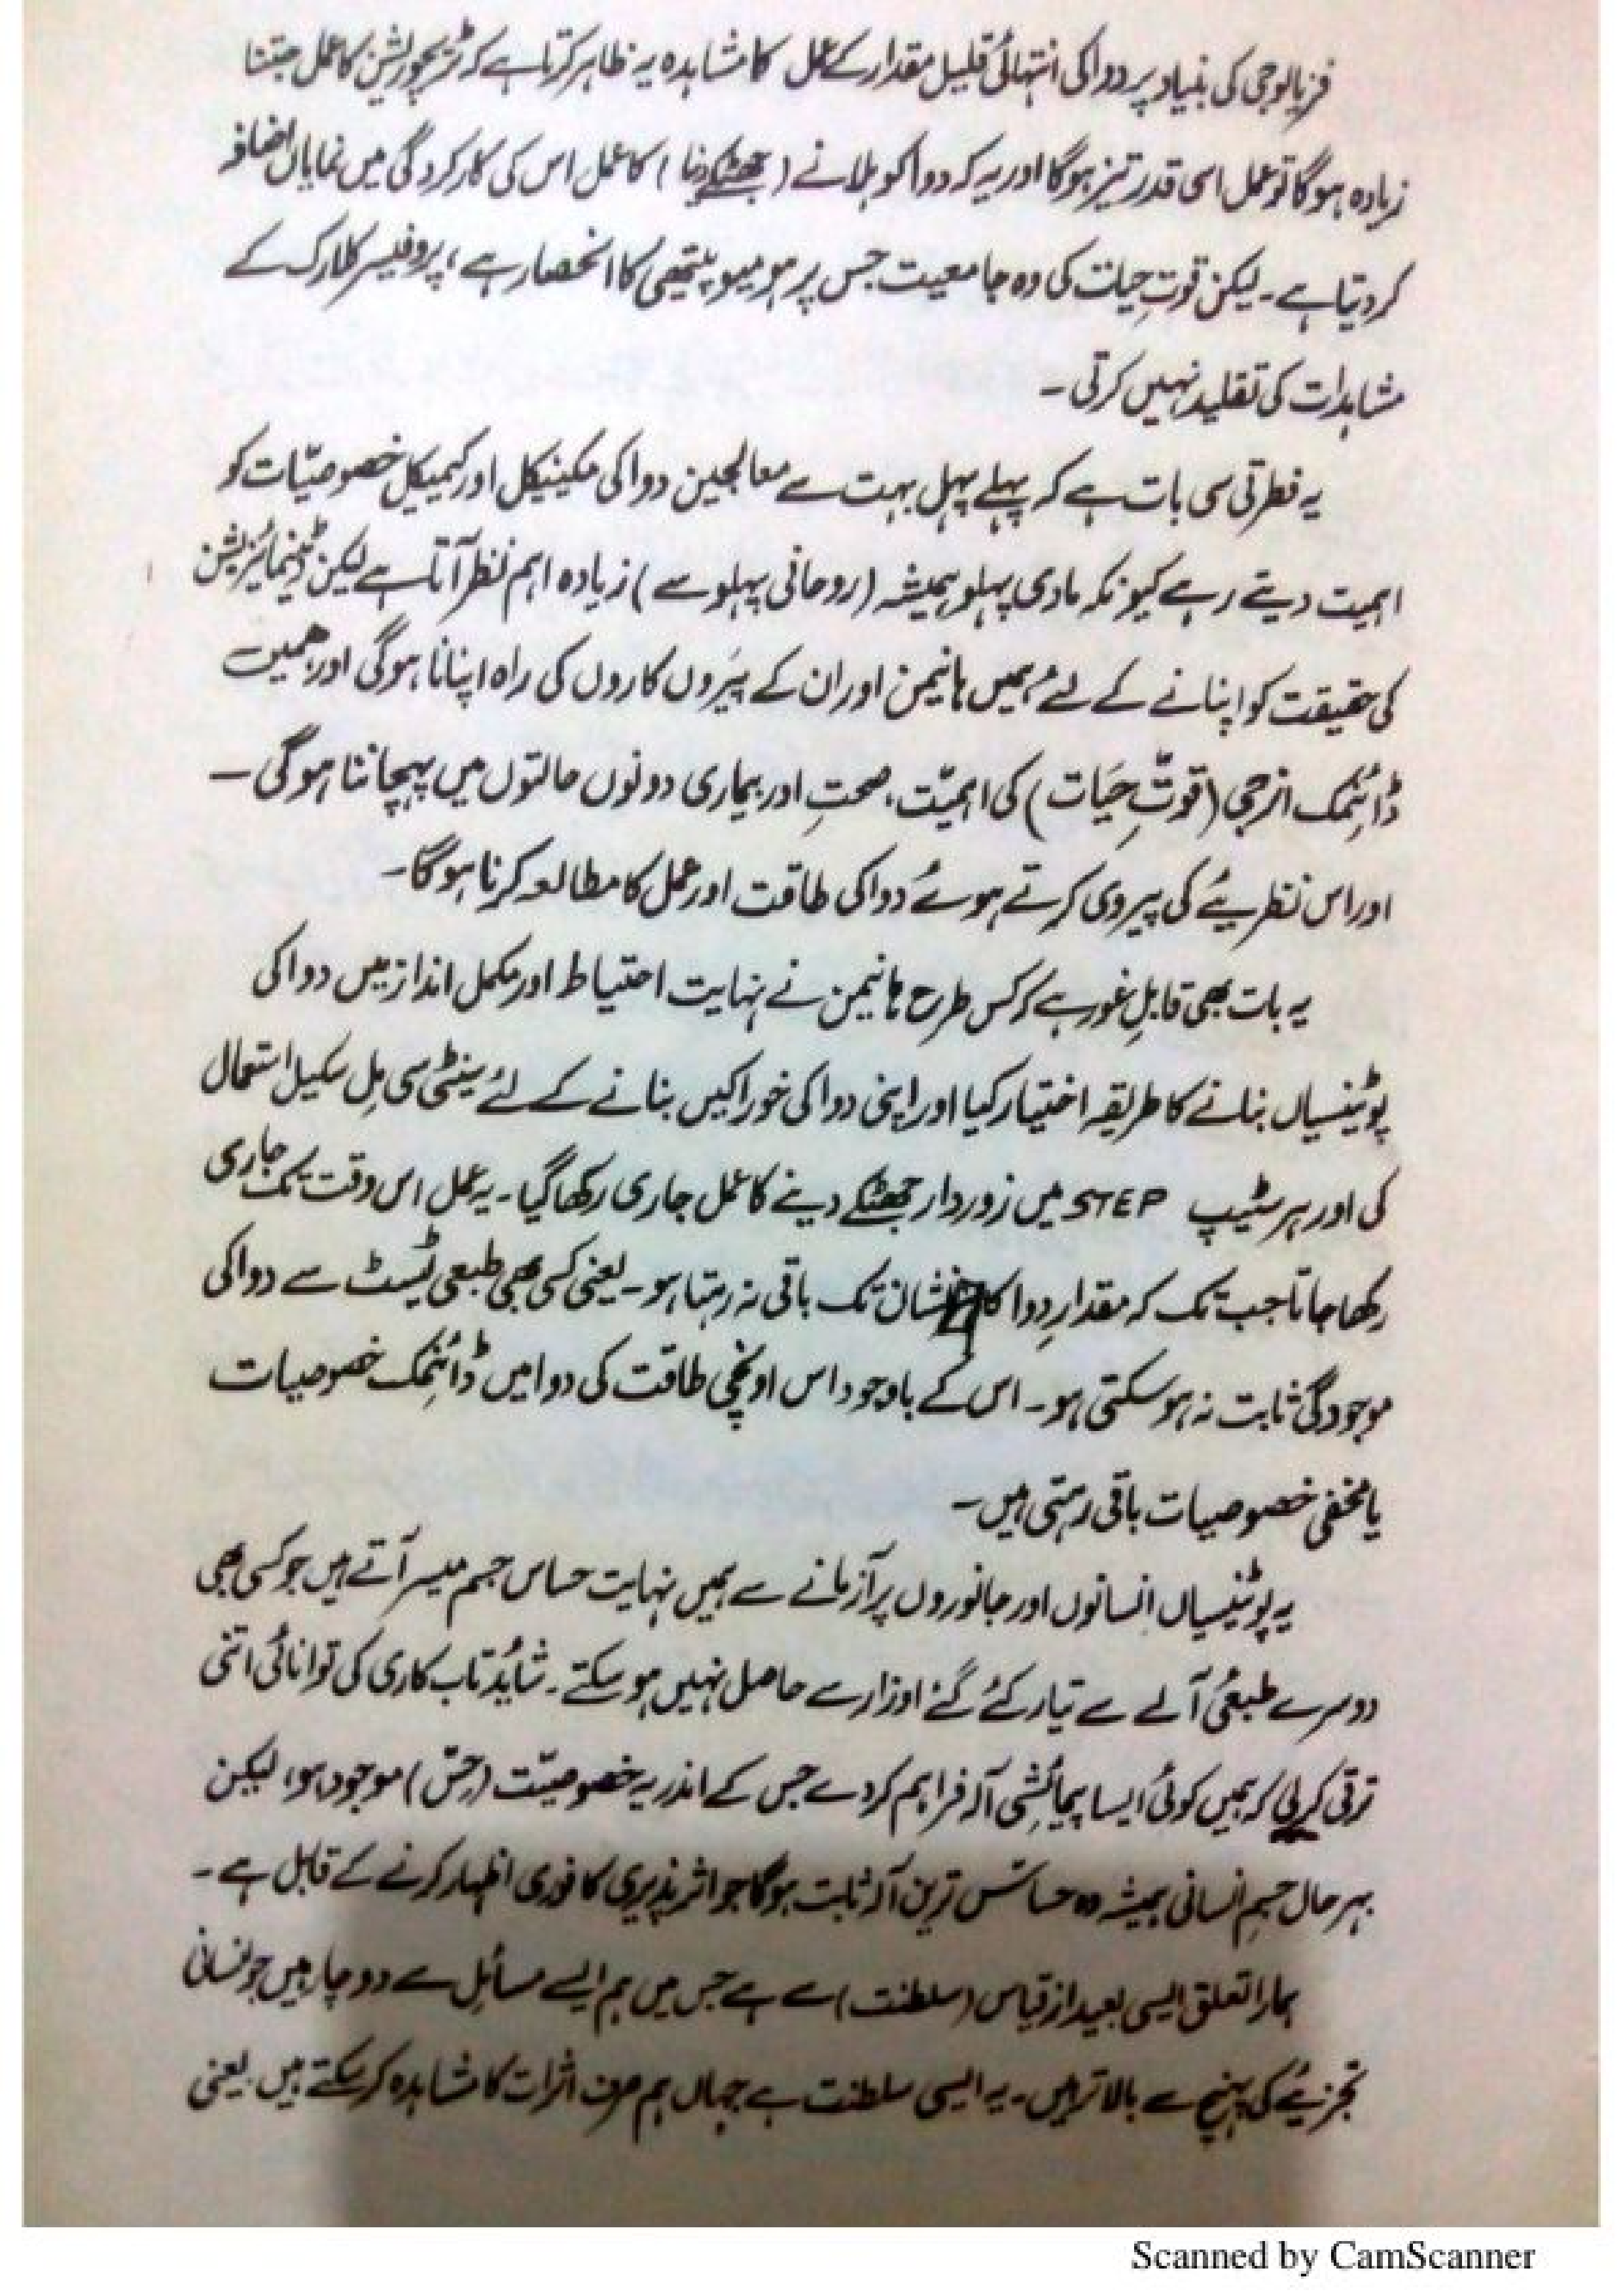 فزیالوجی کی بنیاد پر دوا کی انتہائی قلیل مقدار کے عمل کا مشاہدہ یہ ظاہر کرتا ہے کہ ٹریچوریشن کا عمل جتنا
زیادہ ہوگا تو عمل اسی قدر تیز ہوگا اور یہ کہ دوا کو ہلانے (جھٹکے دینا) کا عمل اس کی کارکردگی میں نمایاں اضافہ
کر دیتا ہے۔ لیکن قوتِ حیات کی وہ جامعیت جس پر ہومیوپیتھی کا انحصار ہے، پروفیسر کلارک کے
مشاہدات کی تقلید نہیں کرتی۔
یہ فطرتی سی بات ہے کہ پہلے پہل بہت سے معالجین دوا کی مکینیکل اور کیمیکل خصوصیّات کو
اہمیت دیتے رہے کیونکہ مادی پہلو ہمیشہ (روحانی پہلو سے) زیادہ اہم نظر آتا ہے لیکن ڈینمائزیشن
کی حقیقت کو اپنانے کے لئے ہمیں ہانیمن اور ان کے پَیروں کاروں کی راہ اپنانا ہوگی اور ہمیں
ڈائنمک انرجی (قوتِّ حَیات) کی اہمیّت، صحتِ اور بیماری دونوں حالتوں میں پہچاننا ہوگی۔
اور اس نظریئے کی پیروی کرتے ہوئے دوا کی طاقت اور عمل کا مطالعہ کرنا ہوگا۔
یہ بات بھی قابلِ غور ہے کہ کس طرح ہانیمن نے نہایت احتیاط اور مکمل انداز میں دوا کی
پوٹینسیاں بنانے کا طریقہ اختیار کیا اور اپنی دوا کی خوراکیں بنانے کے لئے سینٹی سی مِل سکیل استعمال
کی اور ہر سٹیپ STEP میں زوردار جھٹکے دینے کا عمل جاری رکھا گیا۔ یہ عمل اس وقت تک جاری
رکھا جاتا جب تک کہ مقدارِ دوا کا نشان تک باقی نہ رہتا ہو۔ یعنی کسی بھی طبعی ٹیسٹ سے دوا کی
موجودگی ثابت نہ ہو سکتی ہو۔ اس کے باوجود اس اونچی طاقت کی دوا میں ڈائنمک خصوصیات
یا مخفی خصوصیات باقی رہتی ہیں۔
یہ پوٹینسیاں انسانوں اور جانوروں پر آزمانے سے ہمیں نہایت حساس جسم میسر آتے ہیں جو کسی بھی
دوسرے طبعئی آلے سے تیار کئے گئے اوزار سے حاصل نہیں ہو سکتے۔ شائد تاب کاری کی توانائی اتنی
ترقی کر لی کہ ہمیں کوئی ایسا پیمائشی آلہ فراہم کر دے جس کے اندر یہ خصوصیّت (حسّ) موجود ہو، لیکن
بہر حال جسمِ انسانی ہمیشہ وہ حساس ترین آلہ ثابت ہوگا جو اثر پذیری کا فوری اظہار کرنے کے قابل ہے۔
ہمارا تعلق ایسی بعید از قیاس (سلطنت) سے ہے جس میں ہم ایسے مسائل سے دو چار ہیں جو انسانی
تجزیئے کی پہنچ سے بالا تر ہیں۔ یہ ایسی سلطنت ہے جہاں ہم صرف اثرات کا مشاہدہ کر سکتے ہیں، یعنی
Scanned by CamScanner